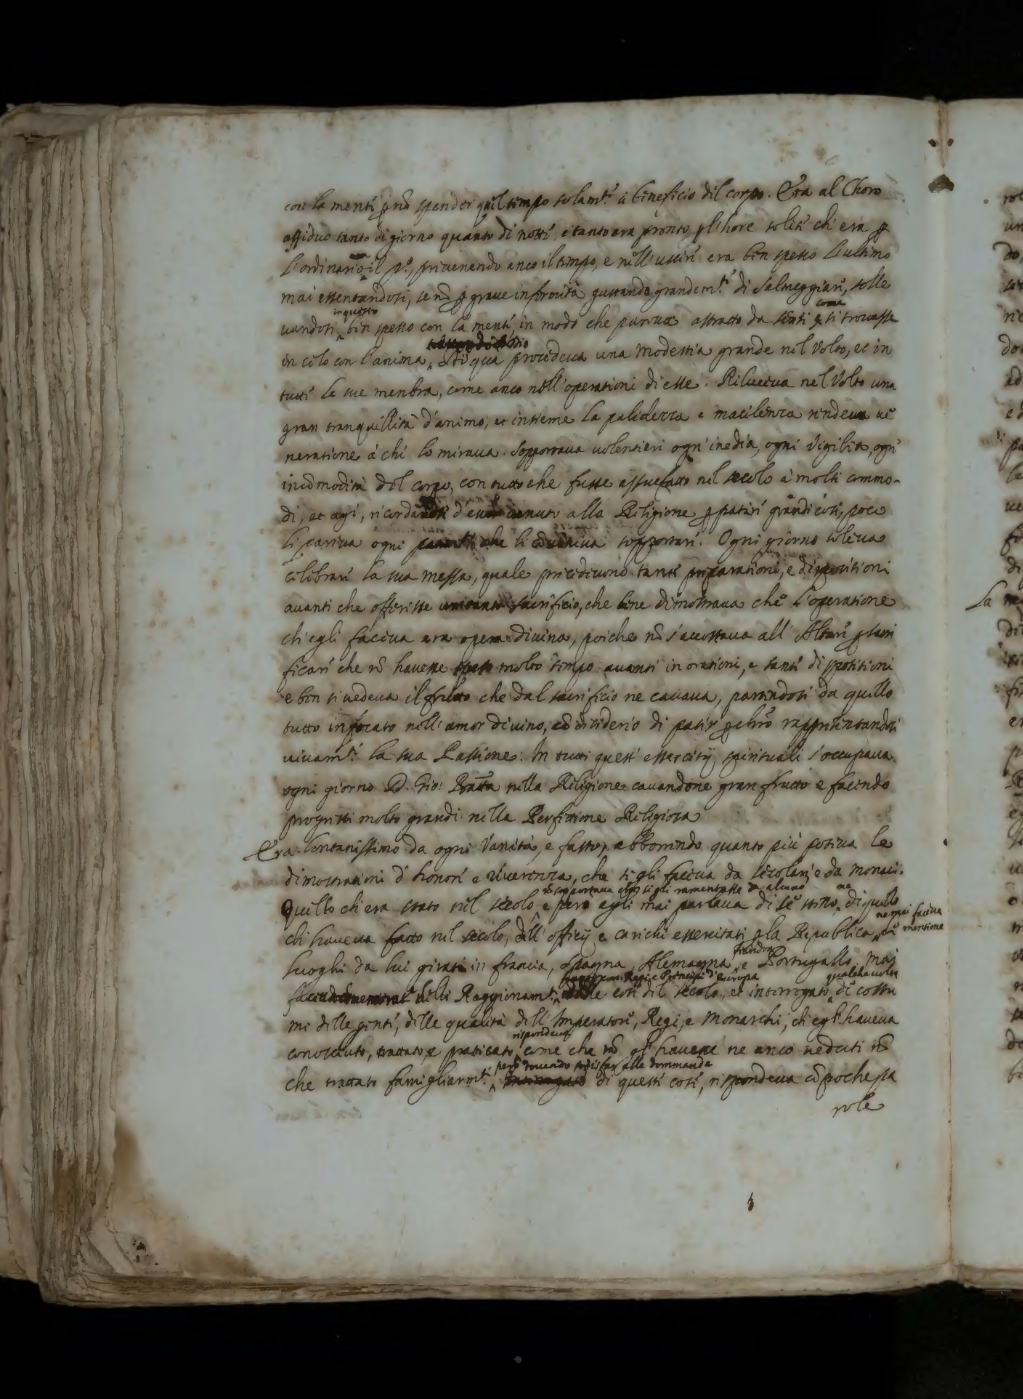 con la mente p nō spender quel tempo solam.te a beneficio del corpo. Era al Choro
assiduo tanto di giorno quanto di notte e tanto era pronto, p l'hore solite che era p
l'ordinario il p.o, prevenendo anco il tempo, e nell'uscire era ben spesso l'ultimo
mai essentandosi, se nō p grave infirmità gustando grandem.te di Salmeggiare, solle
vandosi in questo ben spesso con la mente, in modo che pareva astratto da sensi come si trovasse
in cielo con l'anima, Di qua procedeva una modestia grande nel Volto, et in
tutte le sue membra, come anco nell'operationi di esse. Riluceva nel Volto una
gran tranquillità d'animo, et insieme la palidezza e macilenza rendeva ve
neratione à chi lo mirava. Sopportava volentieri ogn'inedia, ogni Vigilia, ogn'
incōmodità del corpo, con tutto che fusse assuefatto nel secolo à molti commo-
di, et agi, ricordandosi d'esser venuto alla Religione p patire grandi cose, poca
li pareva ogni che li conveniva sopportare. Ogni giorno soleva
celebrare la sua messa, quale precedevono tante preparationi, e dispositioni
avanti che offerisse sacrificio, che bene dimostrava che l'operatione
ch'egli faceva era opera divina, poiche nō s'accostava all'Altare p sacri
ficare che nō havesse molto tempo avanti in orationi, e tante dispositioni
e ben si vedeva il frutto che dal sacrificio ne cavava, partendosi da quello
tutto infocato nell'amor divino, et desiderio di patir p chrō rappresentandosi
vivam.te la sua Passione. In tutti questi essercitij spirituali s'occupava
ogni giorno D. Gio: Batta nella Religione cavandone gran frutto e facendo
progressi molto grandi nella Perfettione Religiosa
Era lontanissimo da ogni Vanità, e fasto, abborrendo quanto più poteva le
dimostrationi d'honore e riverenza, che se gli faceva da secolari e da monaci.
nō sopportava ch'esse gli ramentasse da alcuno ne
Quello ch'era stato nel secolo e però egli mai parlava di se stesso, di quello
ne mai faceva
che haveva fatto nel secolo, dell'officij, e carichi essercitati p la Republica, di mentione
Fiandra
luoghi da lui girati in francia, spagna, Alemagna e Portugallo, mai
Regi, e Principi d'Europa qualche volta
delli Raggionam.ti delle cose del secolo, et interrogato di costu
mi delle genti, delle qualità dell'Imperatore, Regi, e Monarchi, ch'egli haveva
rispondeva
conosciuto, trattato e praticato, come che nō gl'havesse ne anco veduti nō
però dovendo sodisfar alle dommande
che trattato famigliarm.te di queste cose, rispondeva cō poche pa
role